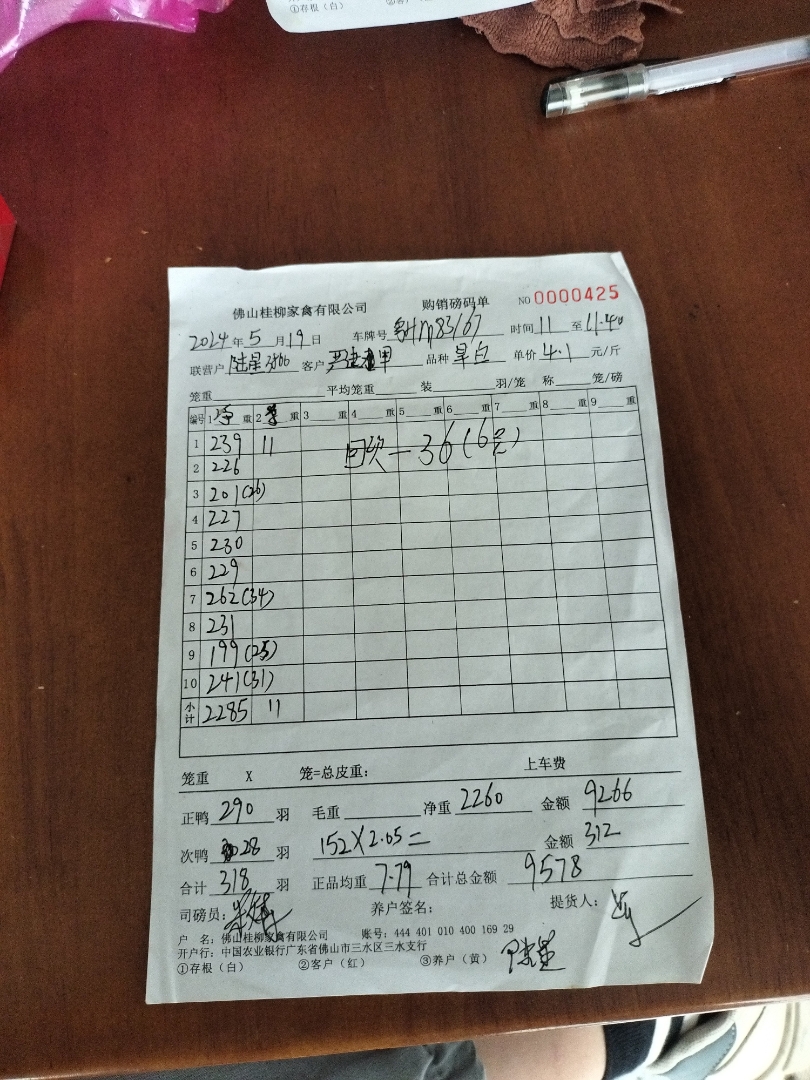 ①存根（白）
佛山桂柳家禽有限公司 购销磅码单 NO 0000425
2024年5月19日 车牌号 83167 时间 11 至 11:40
联营户 陆星 客户 品种 旱白 单价 4.1 元/斤
笼重 平均笼重 装 羽/笼 称 笼/磅
编号 1 重 2 重 3 重 4 重 5 重 6 重 7 重 8 重 9 重
1 239 11 回次-36(6只)
2 226
3 201(26)
4 227
5 230
6 229
7 262(34)
8 231
9 199(25)
10 241(31)
小计 2285 11
笼重 X 笼=总皮重： 上车费
正鸭 290 羽 毛重 净重 2260 金额 9266
次鸭 28 羽 152X2.05= 金额 312
合计 318 羽 正品均重 7.79 合计总金额 9578
司磅员： 养户签名： 提货人：
户 名：佛山桂柳家禽有限公司 账号：444 401 010 400 169 29
开户行：中国农业银行广东省佛山市三水区三水支行
①存根（白） ②客户（红） ③养户（黄）